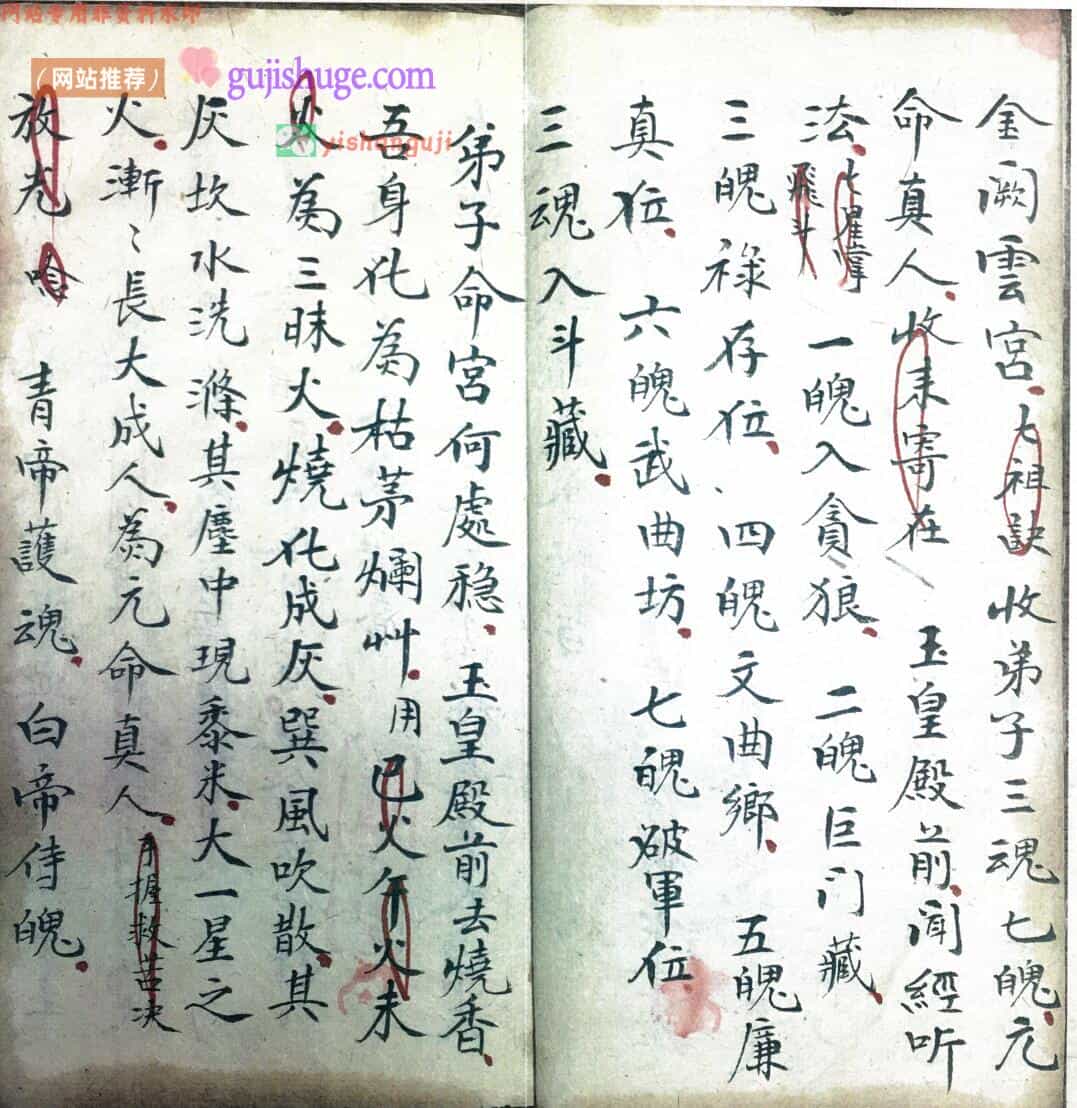 网站专用非资料水印
（网站推荐）
gujishuge.com
yishanguji
金阙雲宮七祖訣收弟子三魂七魄元
命真人收来寄在 玉皇殿前闻經听
法七星掌飛斗 一魄入貪狼 二魄巨门藏
三魄禄存位 四魄文曲鄉 五魄廉
真位 六魄武曲坊 七魄破軍位
三魂入斗藏
弟子命宮何處稳 玉皇殿前去燒香
吾身化為枯茅爛艸用巳火午火未
火為三昧火燒化成灰巽風吹散其
灰坎水洗滌其塵中現黍米大一星之
火漸〻長大成人為元命真人手握救苦决
放光唅 青帝護魂 白帝侍魄